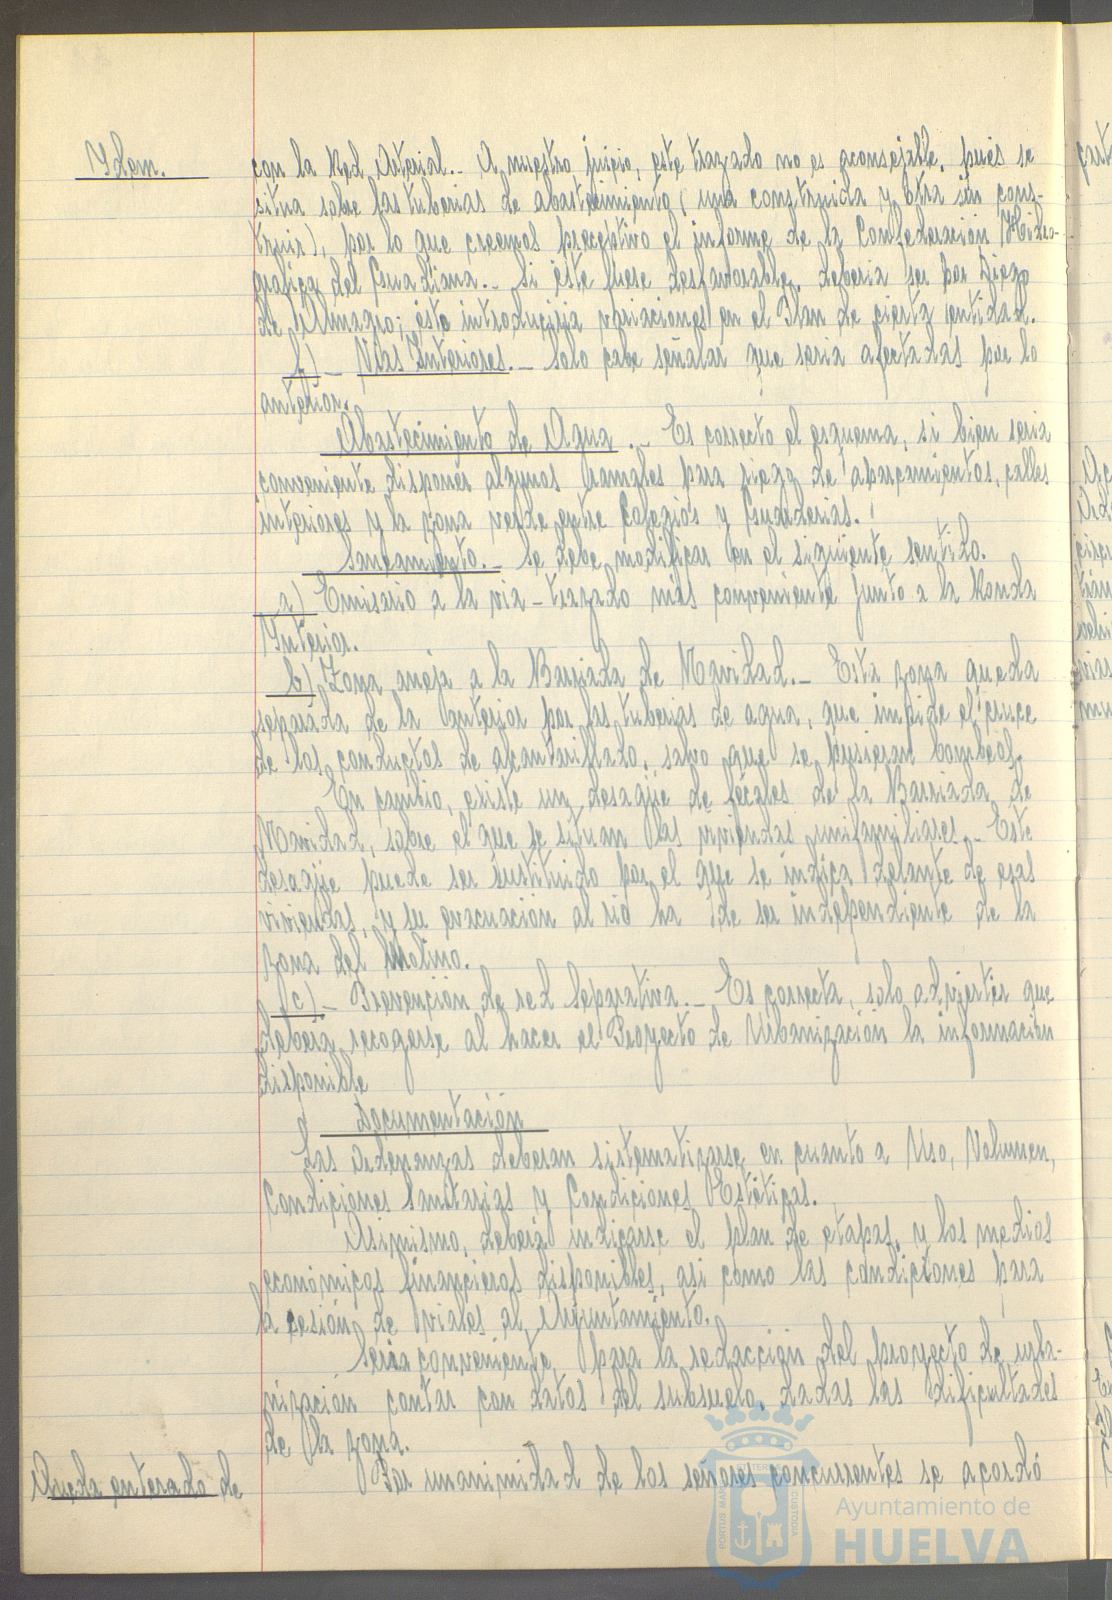 Idem.
con la Red Arterial.- A nuestro juicio, este trazado no es aconsejable, pues se
situa sobre las tuberias de abastecimiento (una construida y otra sin cons-
truir), por lo que creemos preceptivo el informe de la Confederación Hidro-
grafica del Guadiana.- Si éste fuese desfavorable, deberia ser por Diego
de Almagro; éste introduciria variaciones en el Plan de cierta entidad.
b)- Vias Interiores.- Solo cabe señalar que seria afectadas por lo
anterior.
Abastecimiento de Agua.- Es correcto el esquema, si bien seria
conveniente disponer algunos ramales para riego de aparcamientos, calles
interiores y la zona verde entre Colegios y Guarderias.
Saneamiento.- Se debe modificar en el siguiente sentido.
a) Emisario a la via-trazado más conveniente junto a la Ronda
Interior.
b) Zona aneja a la Barriada de Navidad.- Esta zona queda
separada de la anterior por las tuberias de agua, que impide el cruce
de los conductos de alcantarillado, salvo que se pusieran bombeos.
En cambio, existe un desagüe de fécales de la Barriada de
Navidad, sobre el que se situan las viviendas unifamiliares.- Este
desagüe puede ser sustituido por el que se indica delante de esas
viviendas, y su evacuación al rio ha de ser independiente de la
zona del Molino.
c)- Prevención de red Separativa.- Es correcta, solo advertir que
debera recogerse al hacer el Proyecto de Urbanización la información
disponible
Documentación
Las Ordenanzas deberan sistematizarse en cuanto a Uso, Volumen,
Condiciones Sanitarias y Condiciones Estéticas.
Asimismo, deberá indicarse el plan de etapas, y los medios
económicos financieros disponibles, asi como las condiciones para
la cesión de viales al Ayuntamiento.
Seria conveniente para la redacción del proyecto de urba-
nización contar con datos del subsuelo, dadas las dificultades
de la zona.
Queda enterado de
Por unanimidad de los señores concurrentes se acordó
PORTUS MARIS
ET TERRE
CUSTODIA
Ayuntamiento de
HUELVA